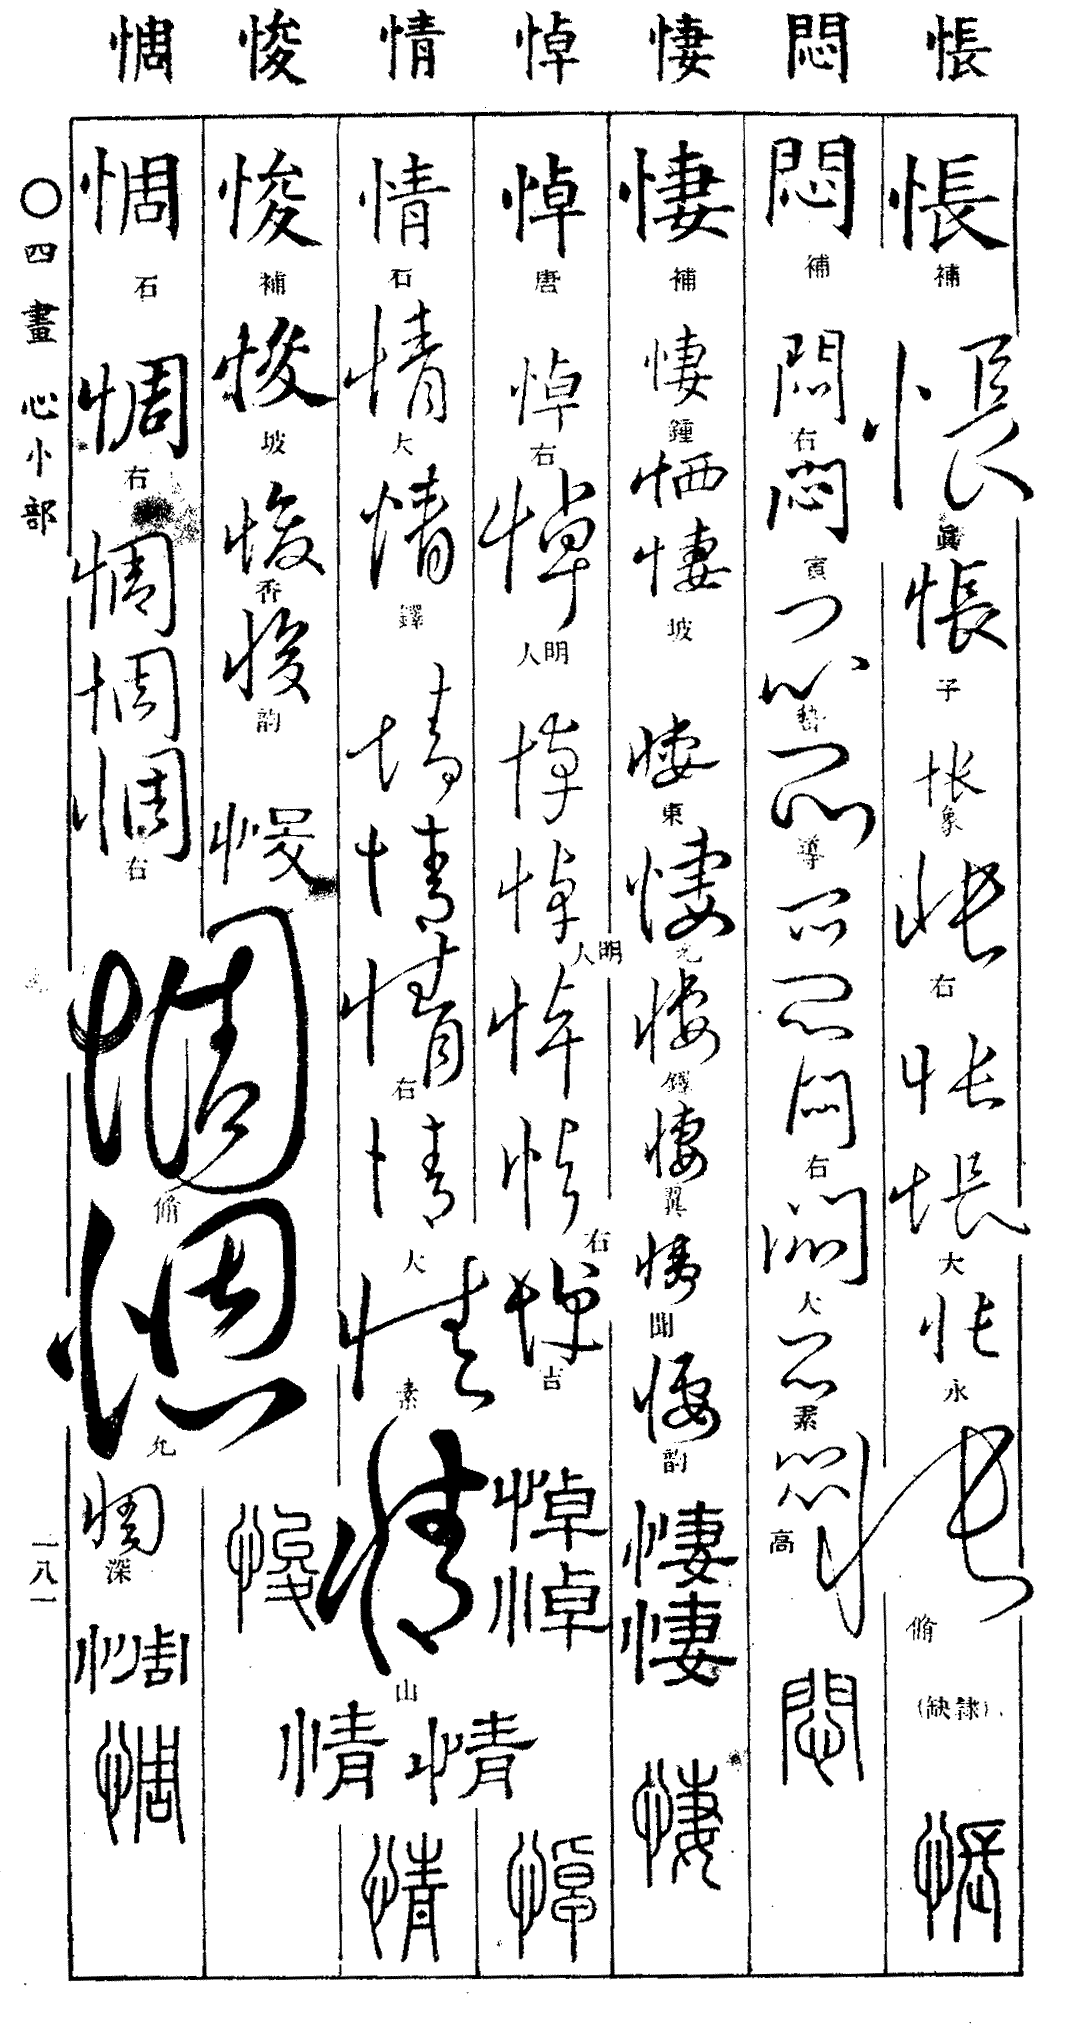 悵 悶 悽 悼 情 悛 惆
悵
補
悵
眞
悵
子
悵
象
悵
右
悵
悵
大
悵
永
悵
脩
（缺隷）
悵
悶
補
悶
右
悶
寅
悶
悶
導
悶
悶
悶
右
悶
大
悶
素
悶
高
悶
悽
補
悽
鍾
悽
坡
悽
東
悽
悽
鐸
悽
翼
悽
聞
悽
韵
悽
悽
悽
悼
唐
悼
右
悼
明人
悼
悼
明人
悼
悼
右
悼
吉
悼
悼
悼
情
石
情
大
情
鐸
情
情
情
右
情
大
情
素
情
山
情 情
情
悛
補
悛
坡
悛
香
悛
韵
悛
悛
惆
石
惆
右
惆
惆
惆
右
惆
脩
惆
允
惆
深
惆
惆
〇四畫 心忄部
一八一